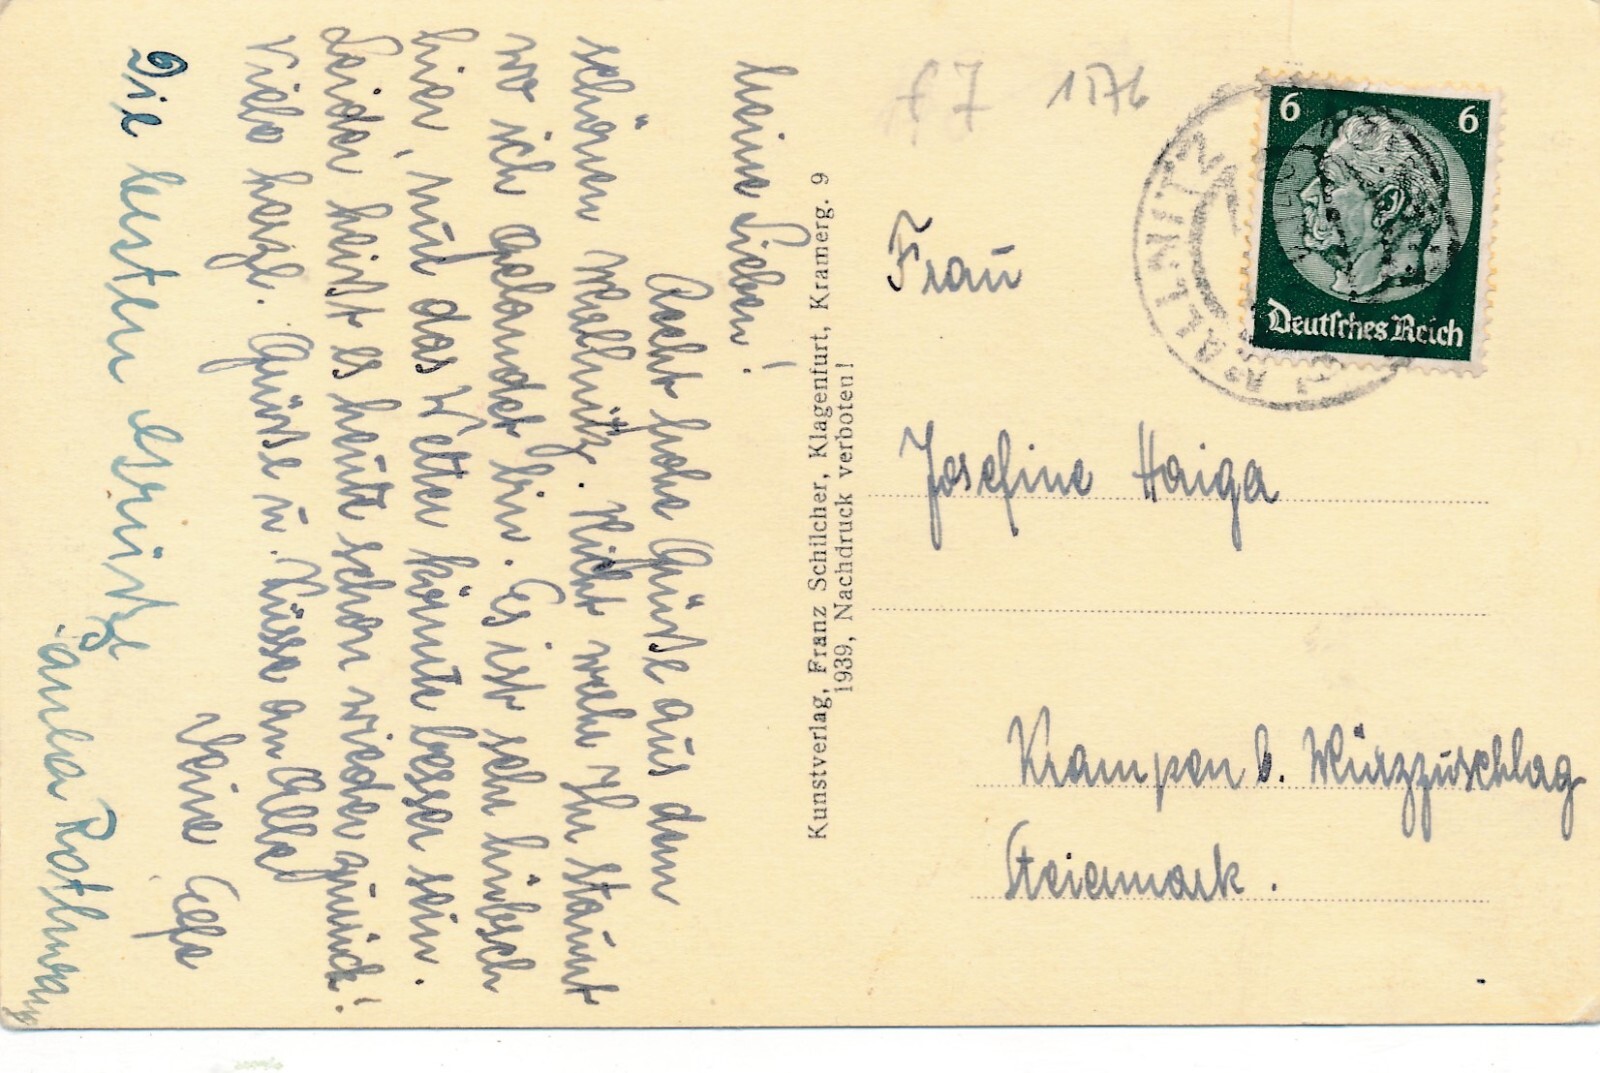 Meine Lieben!
Recht frohe Grüße aus dem
schönen Mallnitz. Nicht wahr Ihr staunt
wo ich gelandet bin. Es ist sehr hübsch
hier, nur das Wetter könnte besser sein.
Leider heißt es heute schon wieder zurück!
Viele herzl. Grüße u. Küsse an Alle
Deine
Die besten Grüße
Kunstverlag, Franz Schilcher, Klagenfurt, Kramerg. 9
1939, Nachdruck verboten!
1176
6 6
Deutsches Reich
MALLNITZ
Frau
Josefine Haiga
Krampen b. Mürzzuschlag
Steiermark.